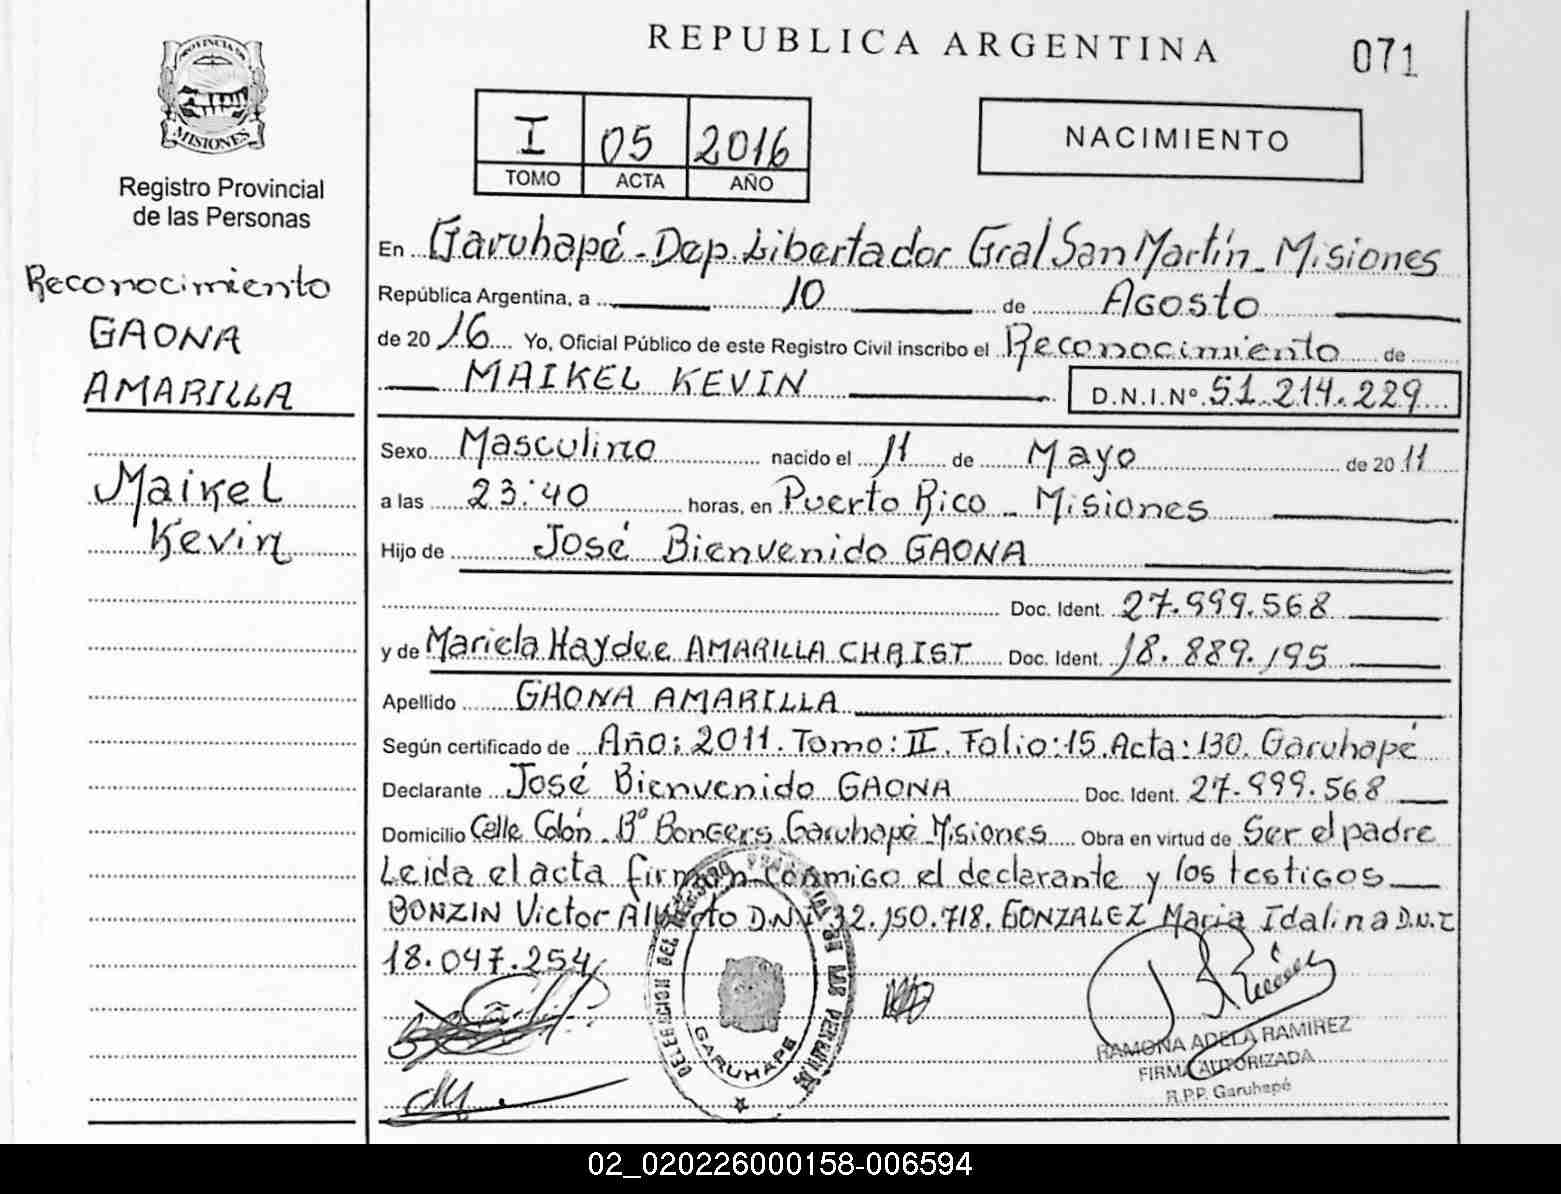 PROVINCIA DE
MISIONES
Registro Provincial
de las Personas
Reconocimiento
GAONA
AMARILLA
Maikel
Kevin
REPUBLICA ARGENTINA
071
I 05 2016
TOMO ACTA AÑO
NACIMIENTO
En Garuhapé - Dep. Libertador Gral San Martín - Misiones
República Argentina, a 10 de Agosto
de 20 16 Yo, Oficial Público de este Registro Civil inscribo el Reconocimiento de
MAIKEL KEVIN D.N.I.Nº 51.214.229
Sexo Masculino nacido el 11 de Mayo de 20 11
a las 23:40 horas, en Puerto Rico - Misiones
Hijo de José Bienvenido GAONA
Doc. Ident. 27.999.568
y de Mariela Haydee AMARILLA CHRIST Doc. Ident. 18.889.195
Apellido GAONA AMARILLA
Según certificado de Año: 2011. Tomo: II. Folio: 15. Acta: 130. Garuhapé
Declarante José Bienvenido GAONA Doc. Ident. 27.999.568
Domicilio Calle Colón - Bº Bongers. Garuhapé Misiones Obra en virtud de Ser el padre
Leida el acta firman conmigo el declarante y los testigos
BONZIN Victor Alberto D.N.I 32.150.718. GONZALEZ Maria Idalina D.N.I
18.047.254
GARUHAPE
RAMONA ADELA RAMIREZ
FIRMA AUTORIZADA
R.P.P. Garuhapé
02_020226000158-006594